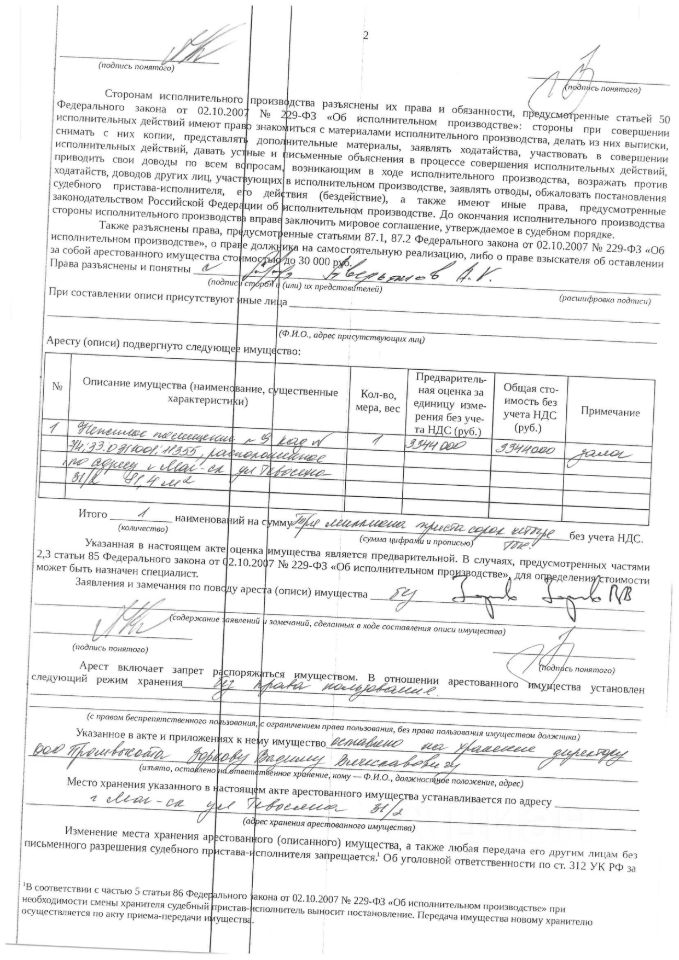 2
(подпись понятого)
(подпись понятого)
Сторонам исполнительного производства разъяснены их права и обязанности, предусмотренные статьей 50
Федерального закона от 02.10.2007 № 229-ФЗ «Об исполнительном производстве»: стороны при совершении
исполнительных действий имеют право знакомиться с материалами исполнительного производства, делать из них выписки,
снимать с них копии, представлять дополнительные материалы, заявлять ходатайства, участвовать в совершении
исполнительных действий, давать устные и письменные объяснения в процессе совершения исполнительных действий,
приводить свои доводы по всем вопросам, возникающим в ходе исполнительного производства, возражать против
ходатайств, доводов других лиц, участвующих в исполнительном производстве, заявлять отводы, обжаловать постановления
судебного пристава-исполнителя, его действия (бездействие), а также имеют иные права, предусмотренные
законодательством Российской Федерации об исполнительном производстве. До окончания исполнительного производства
стороны исполнительного производства вправе заключить мировое соглашение, утверждаемое в судебном порядке.
Также разъяснены права, предусмотренные статьями 87.1, 87.2 Федерального закона от 02.10.2007 № 229-ФЗ «Об
исполнительном производстве», о праве должника на самостоятельную реализацию, либо о праве взыскателя об оставлении
за собой арестованного имущества стоимостью до 30 000 руб.
Права разъяснены и понятны
(подписи сторон и (или) их представителей) (расшифровка подписи)
При составлении описи присутствуют иные лица
(Ф.И.О., адрес присутствующих лиц)
Аресту (описи) подвергнуто следующее имущество:
№ Описание имущества (наименование, существенные характеристики) Кол-во, мера, вес Предваритель-ная оценка за единицу изме-рения без уче-та НДС (руб.) Общая сто-имость без учета НДС (руб.) Примечание
1 Нежилое помещение 1 3344000 3344000 залог
расположенное
по адресу г Маг-ск ул Тевосяна
31/2 81,4 м2
Итого 1 наименований на сумму Три миллиона триста сорок четыре без учета НДС.
(количество) (сумма цифрами и прописью) тыс.
Указанная в настоящем акте оценка имущества является предварительной. В случаях, предусмотренных частями
2,3 статьи 85 Федерального закона от 02.10.2007 № 229-ФЗ «Об исполнительном производстве», для определения стоимости
может быть назначен специалист.
Заявления и замечания по поводу ареста (описи) имущества
(содержание заявлений и замечаний, сделанных в ходе составления описи имущества)
(подпись понятого)
(подпись понятого)
Арест включает запрет распоряжаться имуществом. В отношении арестованного имущества установлен
следующий режим хранения без права пользования
(с правом беспрепятственного пользования, с ограничением права пользования, без права пользования имуществом должника)
Указанное в акте и приложениях к нему имущество оставлено на хранение директору
ООО Промвысота Зоркову Вадиму Вячеславовичу
(изъято, оставлено на ответственное хранение, кому — Ф.И.О., должностное положение, адрес)
Место хранения указанного в настоящем акте арестованного имущества устанавливается по адресу
г Маг-ск ул Тевосяна 31/2
(адрес хранения арестованного имущества)
Изменение места хранения арестованного (описанного) имущества, а также любая передача его другим лицам без
письменного разрешения судебного пристава-исполнителя запрещается.¹ Об уголовной ответственности по ст. 312 УК РФ за
¹В соответствии с частью 5 статьи 86 Федерального закона от 02.10.2007 № 229-ФЗ «Об исполнительном производстве» при
необходимости смены хранителя судебный пристав-исполнитель выносит постановление. Передача имущества новому хранителю
осуществляется по акту приема-передачи имущества.